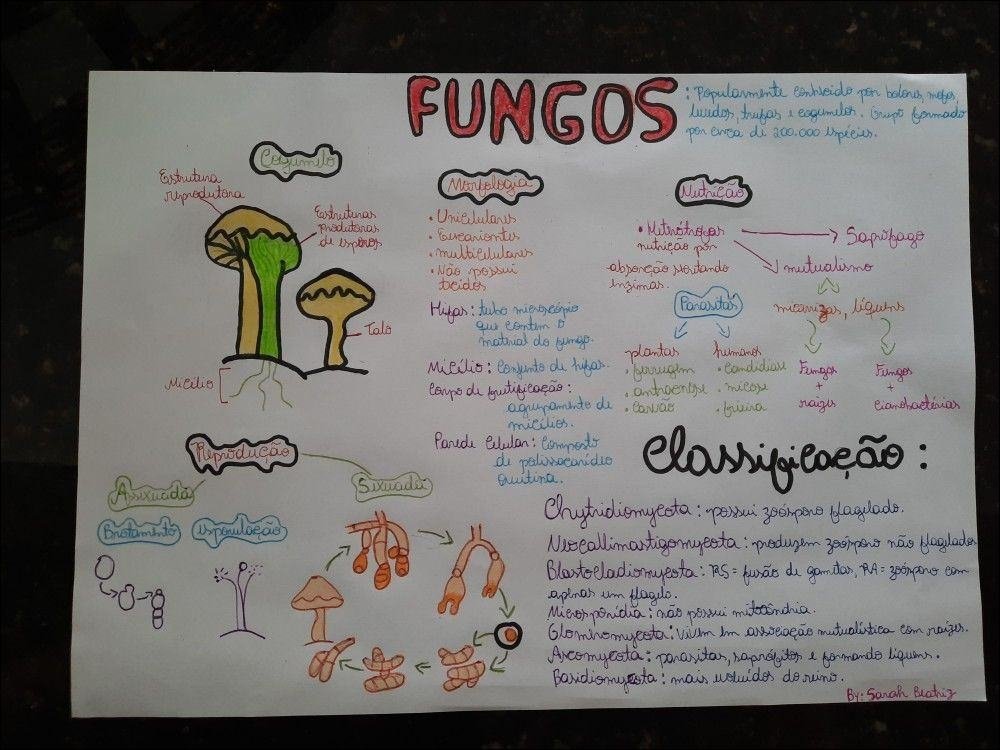 FUNGOS
: Popularmente conhecido por bolores, mofos,
lêvedos, trufas e cogumelos. Grupo formado
por cerca di 200.000 espécies.
Cogumelo
Estrutura
reprodutora
Estruturas
produtoras
de esporos
Talo
Micélio
Morfologia
• Unicelulares
• Eucariontes
• multicelulares
• Não possui
tecidos
Hifas: tubo microscópio
que contem o
material do fungo.
Micílio: Conjunto de hifas.
Corpo de frutificação:
agrupamento de
micílios.
Parede Celular: Composto
de polissacarídeo
quitina.
Nutrição
• Hetrótrofas
nutrição por
absorção soltando
enzimas.
Saprófago
mutualismo
micorrizas, líquens
Fungos
+
raizes
Fungos
+
cianobactérias
Parasitas
plantas
• ferrugem
• antracnose
• carvão
humanos
• candidíase
• micose
• frieira
Reprodução
Assexuada
Sexuada
Brotamento
esporulação
Classificação:
Chytridiomycota: possui zoósporo flagelado.
Neocallimastigomycota: produzem zoósporo não flagelados
Blastocladiomycota: RS = fusão de gametas, RA = zoósporo com
apenas um flagelo.
Microsporídia: não possui mitocôndria.
Glomiromycota: vivem em associação mutualística com raízes.
Ascomycota: parasitas, saprófitos e formando líquens.
Basidiomycota: mais evoluídos do reino.
By: Sarah Beatriz